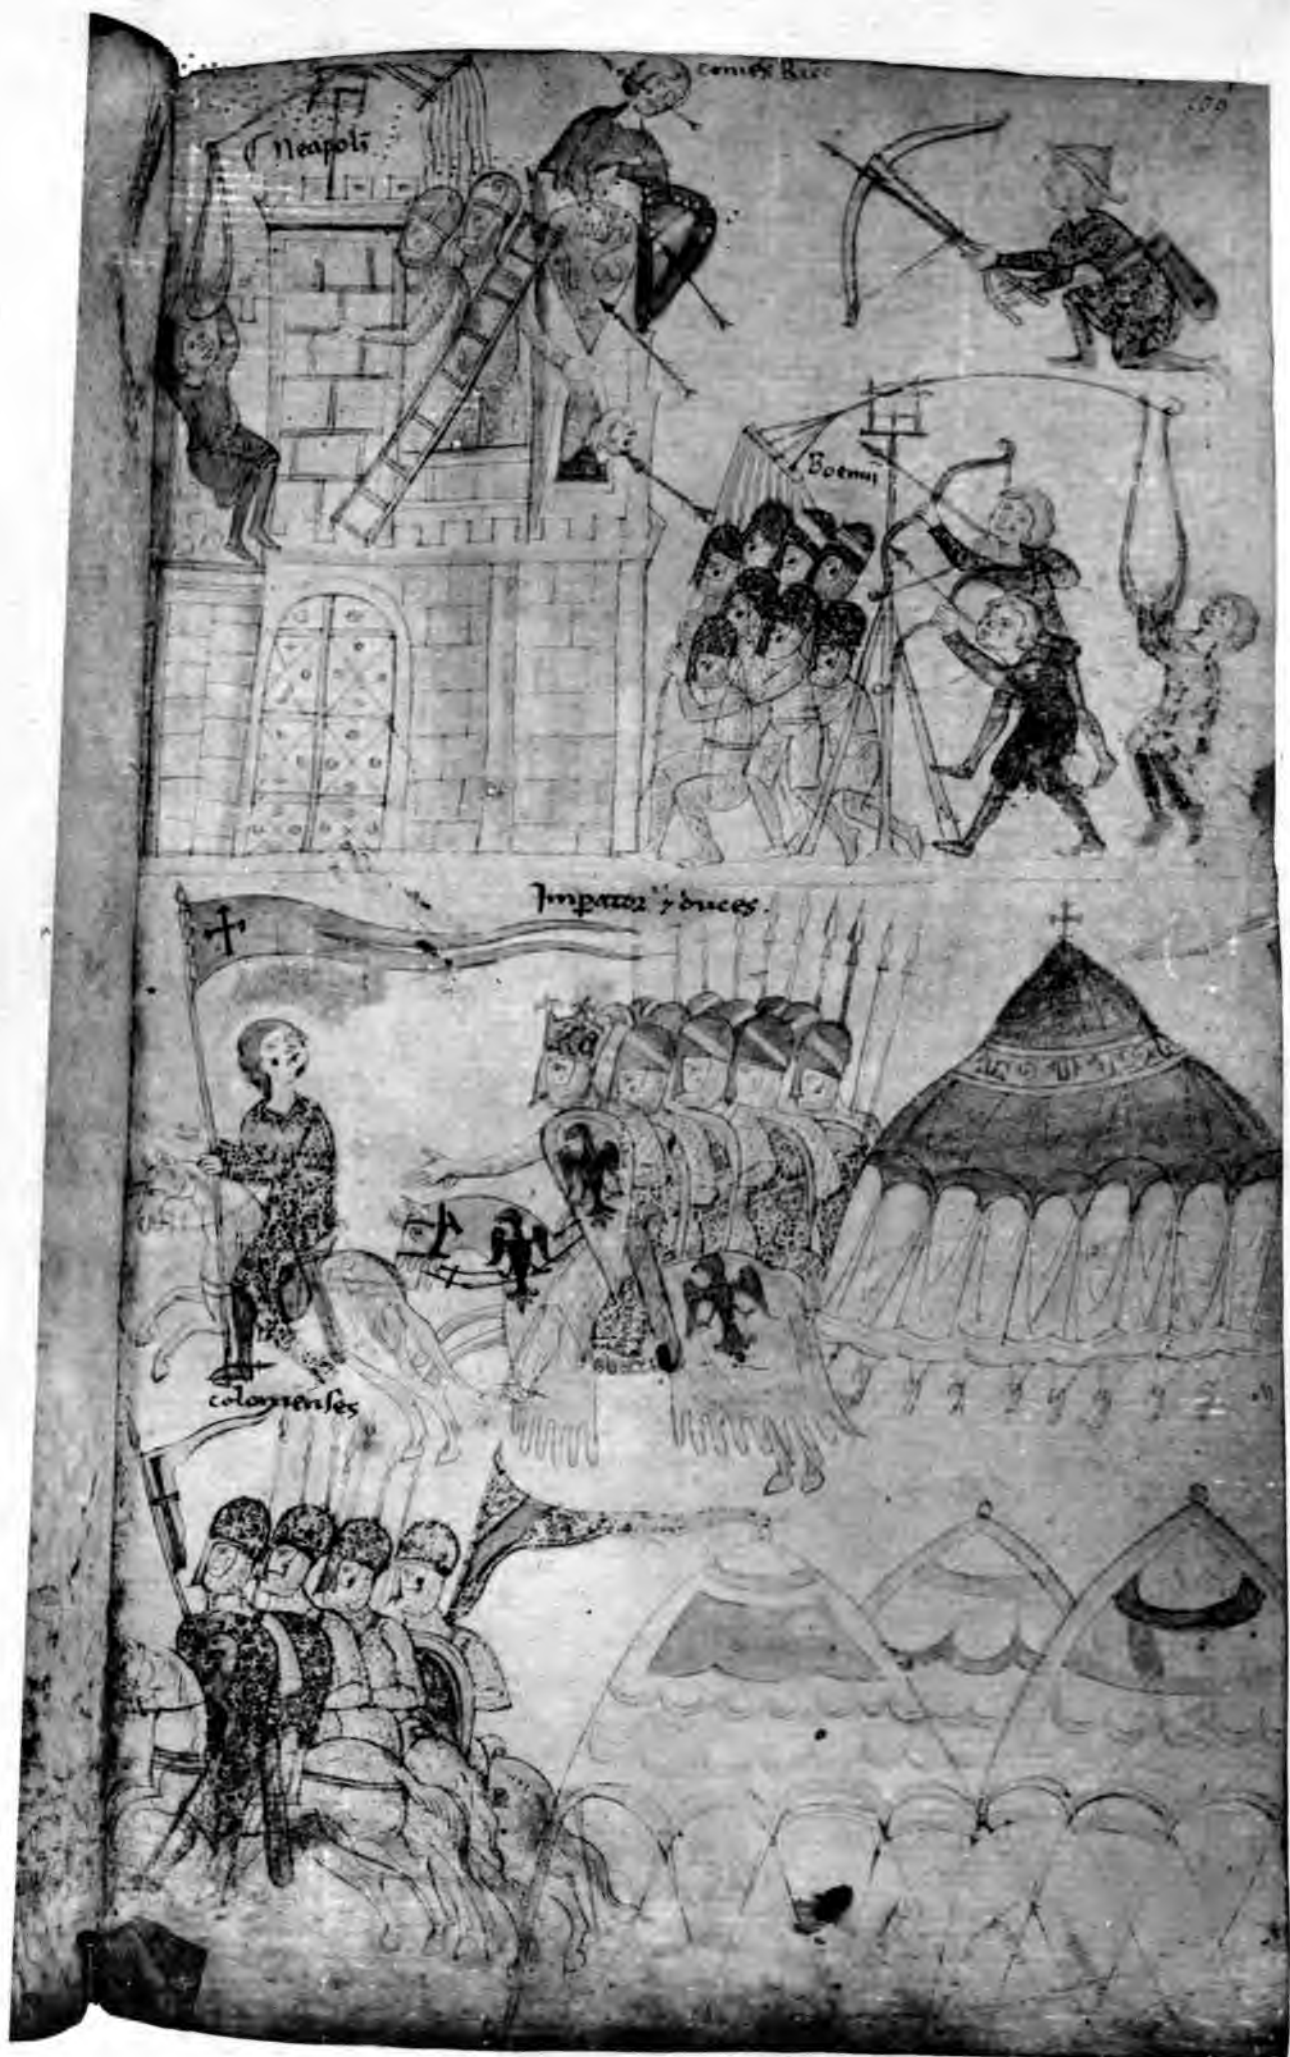 comes Ricc
109
Neapoli
Boemii
Imperator ⁊ duces.
colonienses